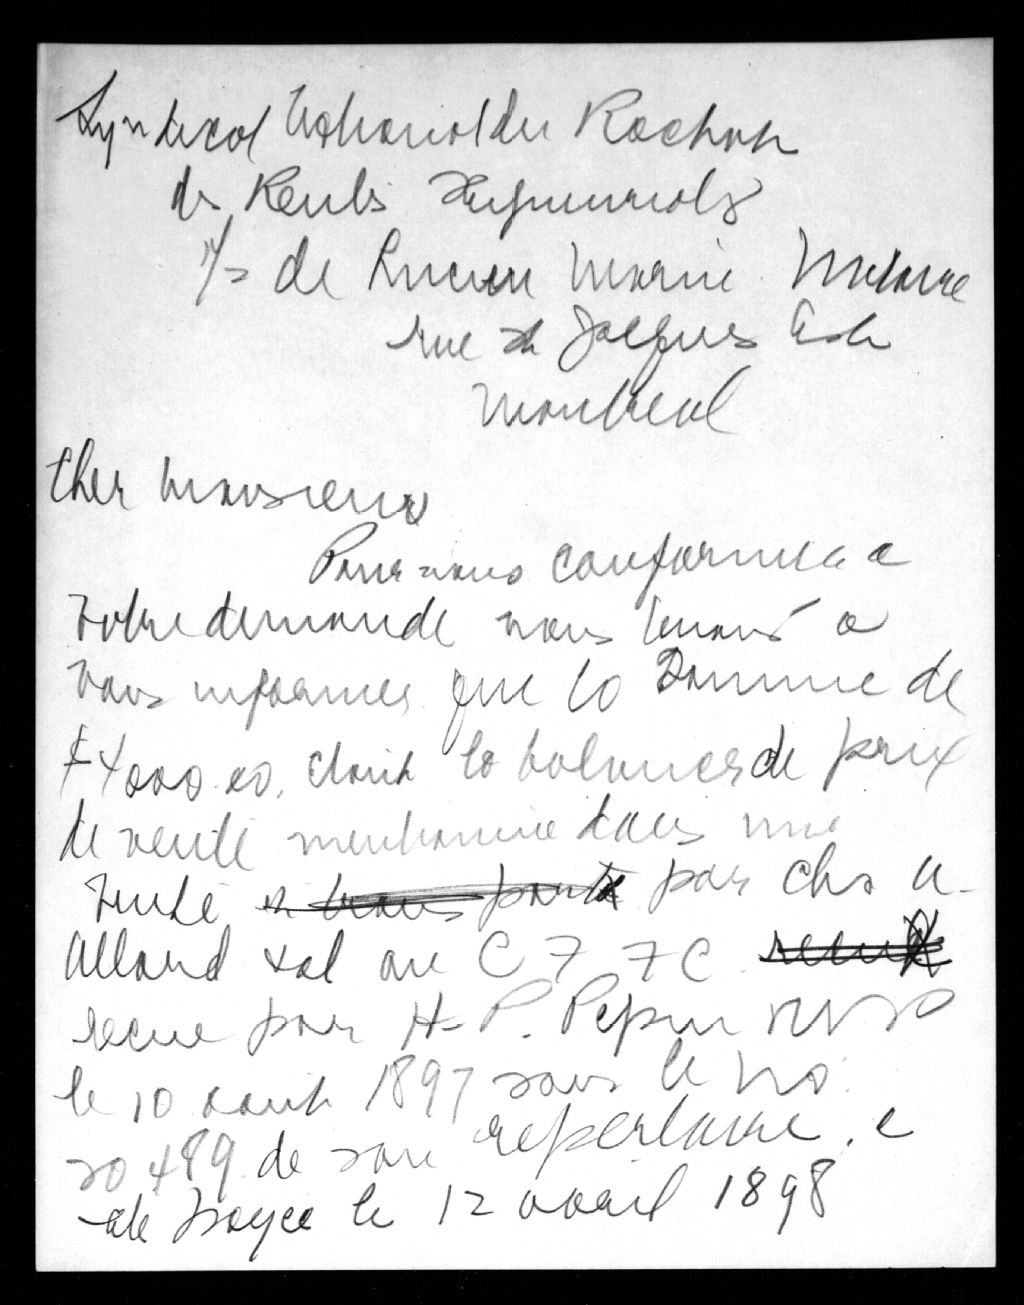 Syndicat National du Rachat
des Rentes Seigneuriales
a/s de Lucien Morin Notaire
rue St Jacques Est
Montreal
Cher Monsieur
Pour nous conformer a
votre demande nous tenons a
vous informer que la somme de
$4000.00, dont la balance de prix
de vente mentionnee dans une
vente par Chs A-
Allard et al au C F F C
recue par H-P. Pepin
le 10 aout 1897 sous le No.
20489 de son repertoire, a
ete payee le 12 avril 1898